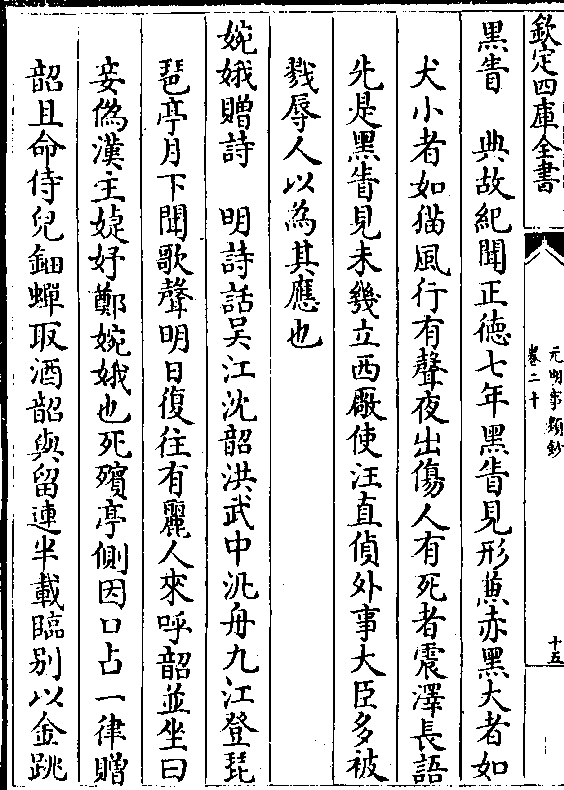 欽定四庫全書
元明事類鈔
卷二十
十五
黑眚　典故紀聞正德七年黑眚見形兼赤黑大者如
犬小者如猫風行有聲夜出傷人有死者震澤長語
先是黑眚見未幾立西厰使汪直偵外事大臣多被
戮辱人以為其應也
婉娥贈詩　明詩話吴江沈韶洪武中汎舟九江登琵
琶亭月下聞歌聲明日復往有麗人來呼韶並坐曰
妾偽漢主婕妤鄭婉娥也死殯亭側因口占一律贈
韶且命侍兒鈿蟬取酒韶與留連半載臨别以金跳